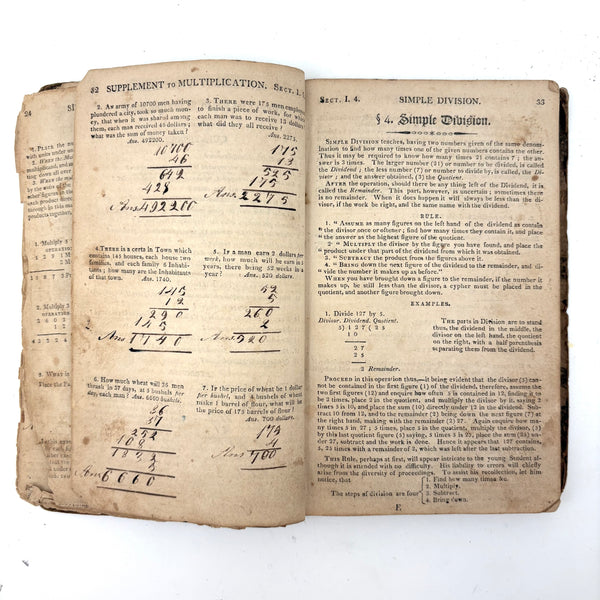 24
1. Multiply 5
OPERATION
2. Multiply 3
OPERATION
32 SUPPLEMENT TO MULTIPLICATION. SECT. I.
2. AN army of 10700 men having
plundered a city, took so much mo-
ney, that when it was shared among
them, each man received 46 dollars;
what was the sum of money taken?
Ans. 492200.
10700
46
642
428
Ans 492200
3. THERE were 175 men employ
to finish a piece of work, for which
each man was to receive 13 dollars
what did they all receive?
Ans. 2275
175
13
525
175
Ans. 2275
4. THERE is a certain Town which
contains 145 houses, each house two
families, and each family 6 Inhabi-
tants; how many are the Inhabitants
of that town. Ans. 1740.
145
12
290
145
Ans 1740
5. If a man earn 2 dollars per
week, how much will he earn in 5
years, there being 52 weeks in a
year? Ans. 520 dollars.
52
5
260
2
Ans 520
6. How much wheat will 36 men
thrash in 37 days, at 5 bushels per
day, each man? Ans. 6660 bushels.
36
37
252
108
5
Ans 6660
7. If the price of wheat be 1 dollar
per bushel, and 4 bushels of wheat
make 1 barrel of flour, what will be
the price of 175 barrels of flour?
Ans. 700 dollars.
175
4
Ans 700
SECT. I. 4. SIMPLE DIVISION. 33
§ 4. Simple Division.
SIMPLE DIVISION teaches, having two numbers given of the same deno-
mination to find how many times one of the given numbers contains the other.
Thus it may be required to know how many times 21 contains 7; the an-
swer is 3 times. The larger number (21) or number to be divided, is called
the Dividend; the less number (7) or number to divide by, is called the Di-
visor; and the answer obtained, (3) the Quotient.
AFTER the operation, should there be any thing left of the Dividend, it is
called the Remainder. This part, however, is uncertain; sometimes there
is no remainder. When it does happen it will always be less than the divi-
sor, if the work be right, and of the same name with the dividend.
RULE.
1. "ASSUME as many figures on the left hand of the dividend as contain
"the divisor once or oftener; find how many times they contain it, and place
"the answer as the highest figure of the quotient.
2 "MULTIPLY the divisor by the figure you have found, and place the
"product under that part of the dividend from which it was obtained.
3. "SUBTRACT the product from the figures above it.
4. "BRING down the next figure of the dividend to the remainder, and di-
"vide the number it makes up as before."
WHEN you have brought down a figure to the remainder, if the number it
makes up, be still less than the divisor, a cypher must be placed in the
quotient, and another figure brought down.
EXAMPLES.
1. Divide 127 by 5.
Divisor. Dividend. Quotient.
5)127(25
10
27
25
2 Remainder.
THE parts in Division are to stand
thus, the dividend in the middle, the
divisor on the left hand, the quotient
on the right, with a half parenthesis
separating them from the dividend.
PROCEED in this operation thus,—it being evident that the divisor (5) can-
not be contained in the first figure (1) of the dividend, therefore, assume the
two first figures (12) and enquire how often 5 is contained in 12, finding it to
be 2 times, place 2 in the quotient, and multiply the divisor by it, saying, 2
times 5 is 10, and place the sum (10) directly under 12 in the dividend. Sub-
tract 10 from 12, and to the remainder (2) bring down the next figure (7) at
the right hand, making with the remainder (2) 27. Again enquire how ma-
ny times 5 in 27; 5 times, place 5 in the quotient, multiply the divisor, (5)
by this last quotient figure (5) saying, 5 times 5 is 25, place the sum (25) un-
der 27, subtract and the work is done. Hence it appears that 127 contains,
5, 25 times with a remainder of 2, which was left after the last subtraction.
THIS Rule, perhaps at first, will appear intricate to the young Student al-
though it is attended with no difficulty. His liability to errors will chiefly
arise from the diversity of proceedings. To assist his recollection, let him
notice, that
The steps of division are four
1. Find how many times &c.
2. Multiply.
3. Subtract.
4. Bring down.
E